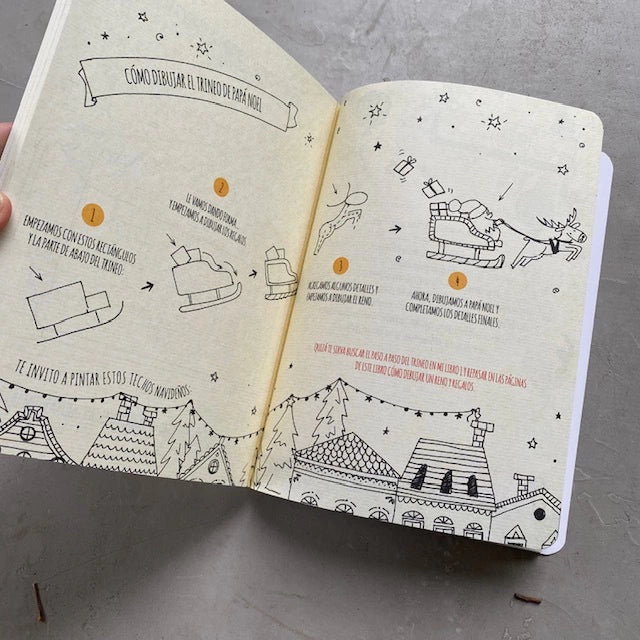 CÓMO DIBUJAR EL TRINEO DE PAPÁ NOEL
1
EMPEZAMOS CON ESTOS RECTÁNGULOS
Y LA PARTE DE ABAJO DEL TRINEO.
2
LE VAMOS DANDO FORMA
Y EMPEZAMOS A DIBUJAR LOS REGALOS
3
AGREGAMOS ALGUNOS DETALLES Y
EMPEZAMOS A DIBUJAR EL RENO.
4
AHORA, DIBUJAMOS A PAPÁ NOEL Y
COMPLETAMOS LOS DETALLES FINALES.
QUIZÁ TE SIRVA BUSCAR EL PASO A PASO DEL TRINEO EN MI LIBRO 1 Y REPASAR EN LAS PÁGINAS
DE ESTE LIBRO CÓMO DIBUJAR UN RENO Y REGALOS.
TE INVITO A PINTAR ESTOS TECHOS NAVIDEÑOS: